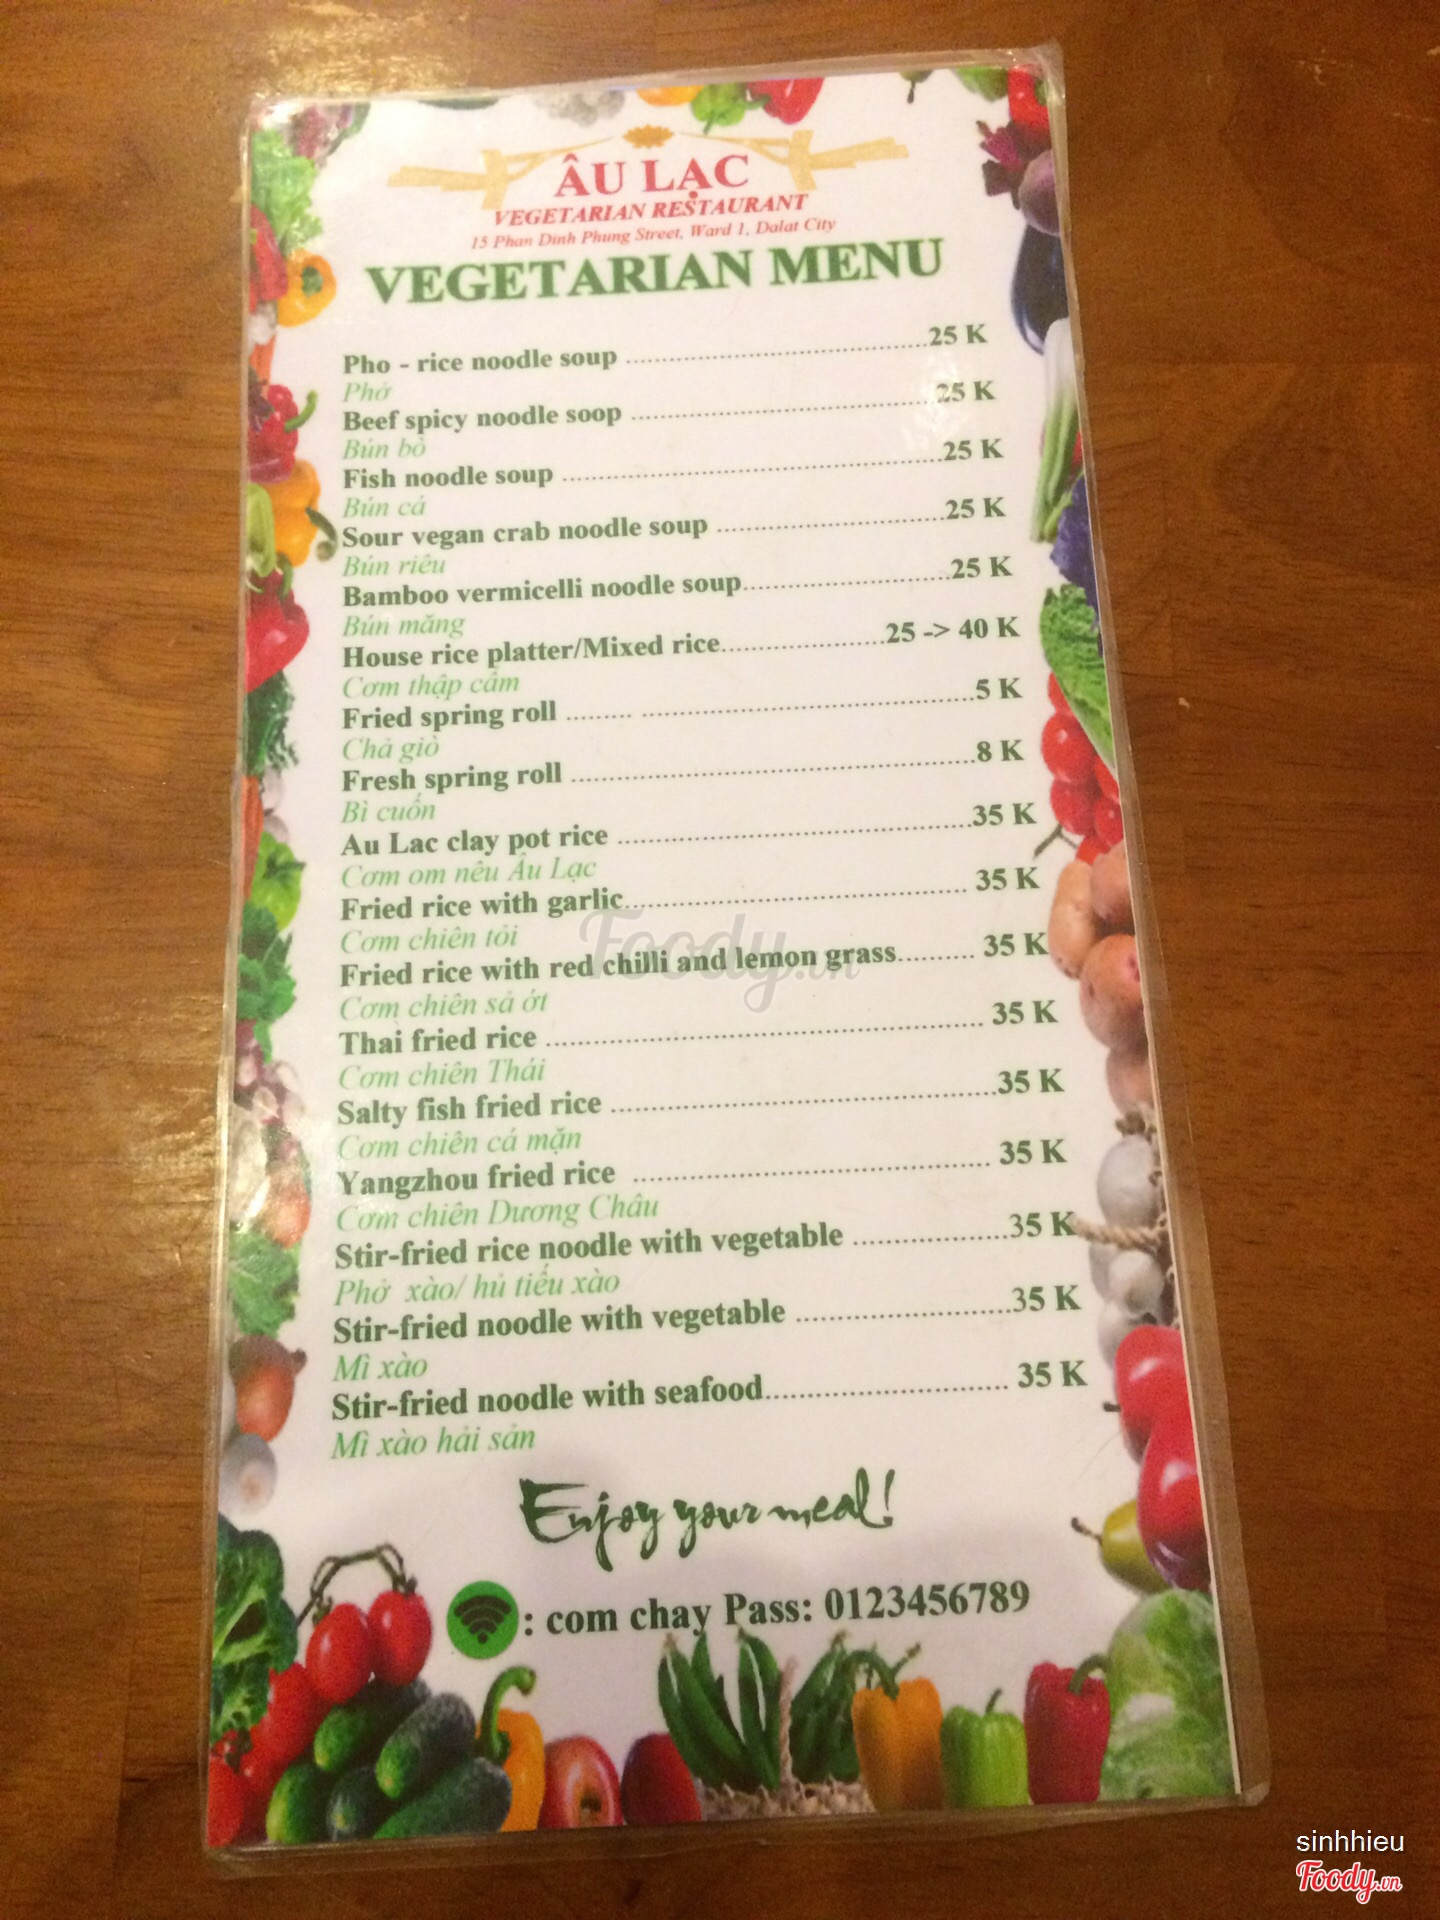 ÂU LẠC
VEGETARIAN RESTAURANT
15 Phan Dinh Phung Street, Ward 1, Dalat City
VEGETARIAN MENU
Pho - rice noodle soup ........................................25 K
Phở
Beef spicy noodle soop ........................................25 K
Bún bò
Fish noodle soup ........................................25 K
Bún cá
Sour vegan crab noodle soup ..............................25 K
Bún riêu
Bamboo vermicelli noodle soup..............................25 K
Bún măng
House rice platter/Mixed rice.......................25 -> 40 K
Cơm thập cẩm
Fried spring roll ......... ..............................................5 K
Chả giò
Fresh spring roll ........................................................8 K
Bì cuốn
Au Lac clay pot rice ..................................................35 K
Cơm om nêu Âu Lạc
Fried rice with garlic................................................ 35 K
Cơm chiên tỏi
Fried rice with red chilli and lemon grass.......... 35 K
Cơm chiên sả ớt
Thai fried rice .......................................................... 35 K
Cơm chiên Thái
Salty fish fried rice ....................................................35 K
Cơm chiên cá mặn
Yangzhou fried rice ................................................ 35 K
Cơm chiên Dương Châu
Stir-fried rice noodle with vegetable ....................35 K
Phở xào/ hủ tiếu xào
Stir-fried noodle with vegetable ............................35 K
Mì xào
Stir-fried noodle with seafood................................ 35 K
Mì xào hải sản
Enjoy your meal!
: com chay Pass: 0123456789
Foody.vn
sinhhieu
Foody.vn